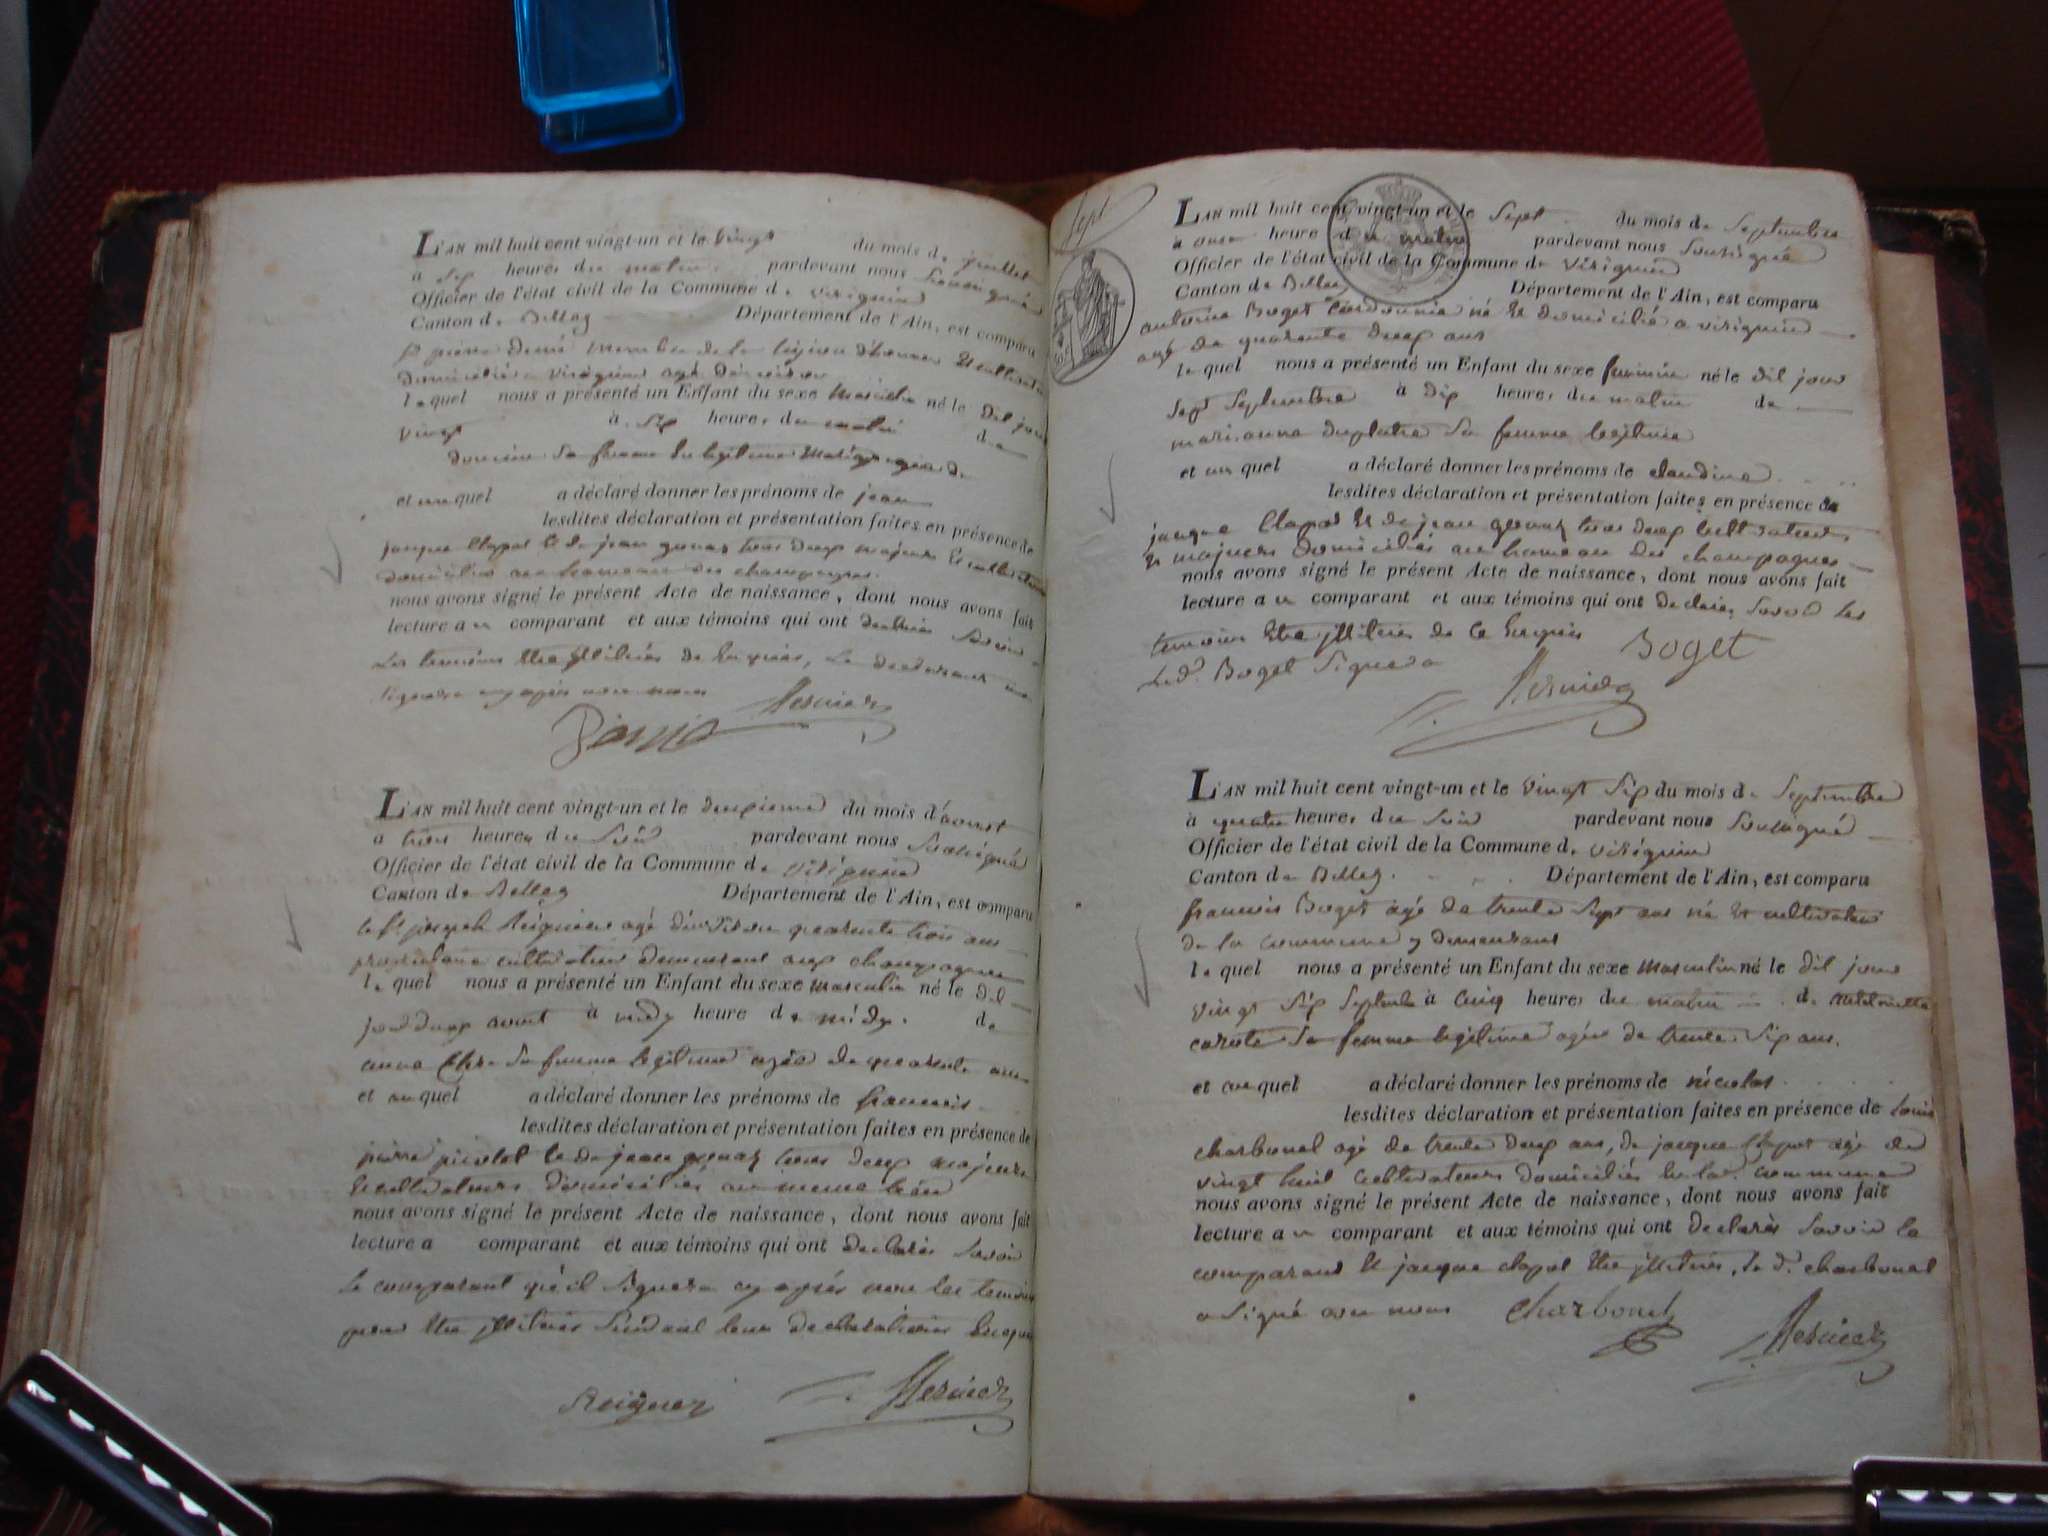 L'AN mil huit cent vingt-un et le vingt du mois de juillet
a six heures du matin pardevant nous soussigné
Officier de l'état civil de la Commune de virignin
Canton de Belley Département de l'Ain, est comparu
pierre membre de la légion d'honneur et
domicilié a virignin agé
lequel nous a présenté un Enfant du sexe masculin né le dit jour
vingt à six heures du matin de
sa femme
et auquel a déclaré donner les prénoms de jean
lesdites déclaration et présentation faites en présence de
jacque Clapot et de jean tous deux majeurs et cultivateurs
domiciliés au hameau des champagnes.
nous avons signé le présent Acte de naissance, dont nous avons fait
lecture au comparant et aux témoins qui ont déclarés savoir
Les temoins etre illiterés de Le declarant
signera cy après avec nous
L'AN mil huit cent vingt-un et le deuxieme du mois d'aoust
a trois heures du soir pardevant nous soussigné
Officier de l'état civil de la Commune de virignin
Canton de Belley Département de l'Ain, est comparu
le Sr joseph Reignier agé d'environ quarente trois ans
propriétaire cultivateur demeurant aux champagnes
lequel nous a présenté un Enfant du sexe masculin né le dit
jour deux aout à midy heure de midy. de
anne sa femme legitime agée de quarente ans
et auquel a déclaré donner les prénoms de francois
lesdites déclaration et présentation faites en présence de
pierre et de jean tous deux majeurs
et cultivateurs domiciliés au meme lieu
nous avons signé le présent Acte de naissance, dont nous avons fait
lecture a comparant et aux témoins qui ont declarés savoir
le comparant qu'il signera cy après avec les temoins
pour etre illiterés suivant leur declaration
Reignier
sept
L'AN mil huit cent vingt-un et le sept du mois de septembre
à onze heure du matin pardevant nous soussigné
Officier de l'état civil de la Commune de virignin
Canton de Belley Département de l'Ain, est comparu
antoine Boget Cordonnier né et domicilié a virignin
agé de quarente deux ans
lequel nous a présenté un Enfant du sexe feminin né le dit jour
sept septembre à dix heures du matin de
marianne duplatre sa femme legitime
et auquel a déclaré donner les prénoms de claudine
lesdites déclaration et présentation faites en présence de
jacque Clapot et de jean tous deux cultivateurs
et majeurs domiciliés au hameau des champagnes
nous avons signé le présent Acte de naissance, dont nous avons fait
lecture au comparant et aux témoins qui ont declarés savoir les
temoins etre illiterés de ce Enquis
Led. Boget signera
Boget
L'AN mil huit cent vingt-un et le vingt six du mois de septembre
à quatre heures du soir pardevant nous soussigné
Officier de l'état civil de la Commune de virignin
Canton de Belley. Département de l'Ain, est comparu
francois Boget agé de trente sept ans né et cultivateur
de la commune y demeurant
lequel nous a présenté un Enfant du sexe masculin né le dit jour
vingt six septembre à cinq heures du matin de antoinette
sa femme legitime agée de trente six ans.
et auquel a déclaré donner les prénoms de nicolas
lesdites déclaration et présentation faites en présence de louis
charbonel agé de trente deux ans, de jacque Clapot agé de
vingt huit cultivateurs domiciliés en lad. commune
nous avons signé le présent Acte de naissance, dont nous avons fait
lecture au comparant et aux témoins qui ont declarés savoir le
comparant et jacque clapot etre illiterés, le d. charbonel
a signé avec nous
Charbonel